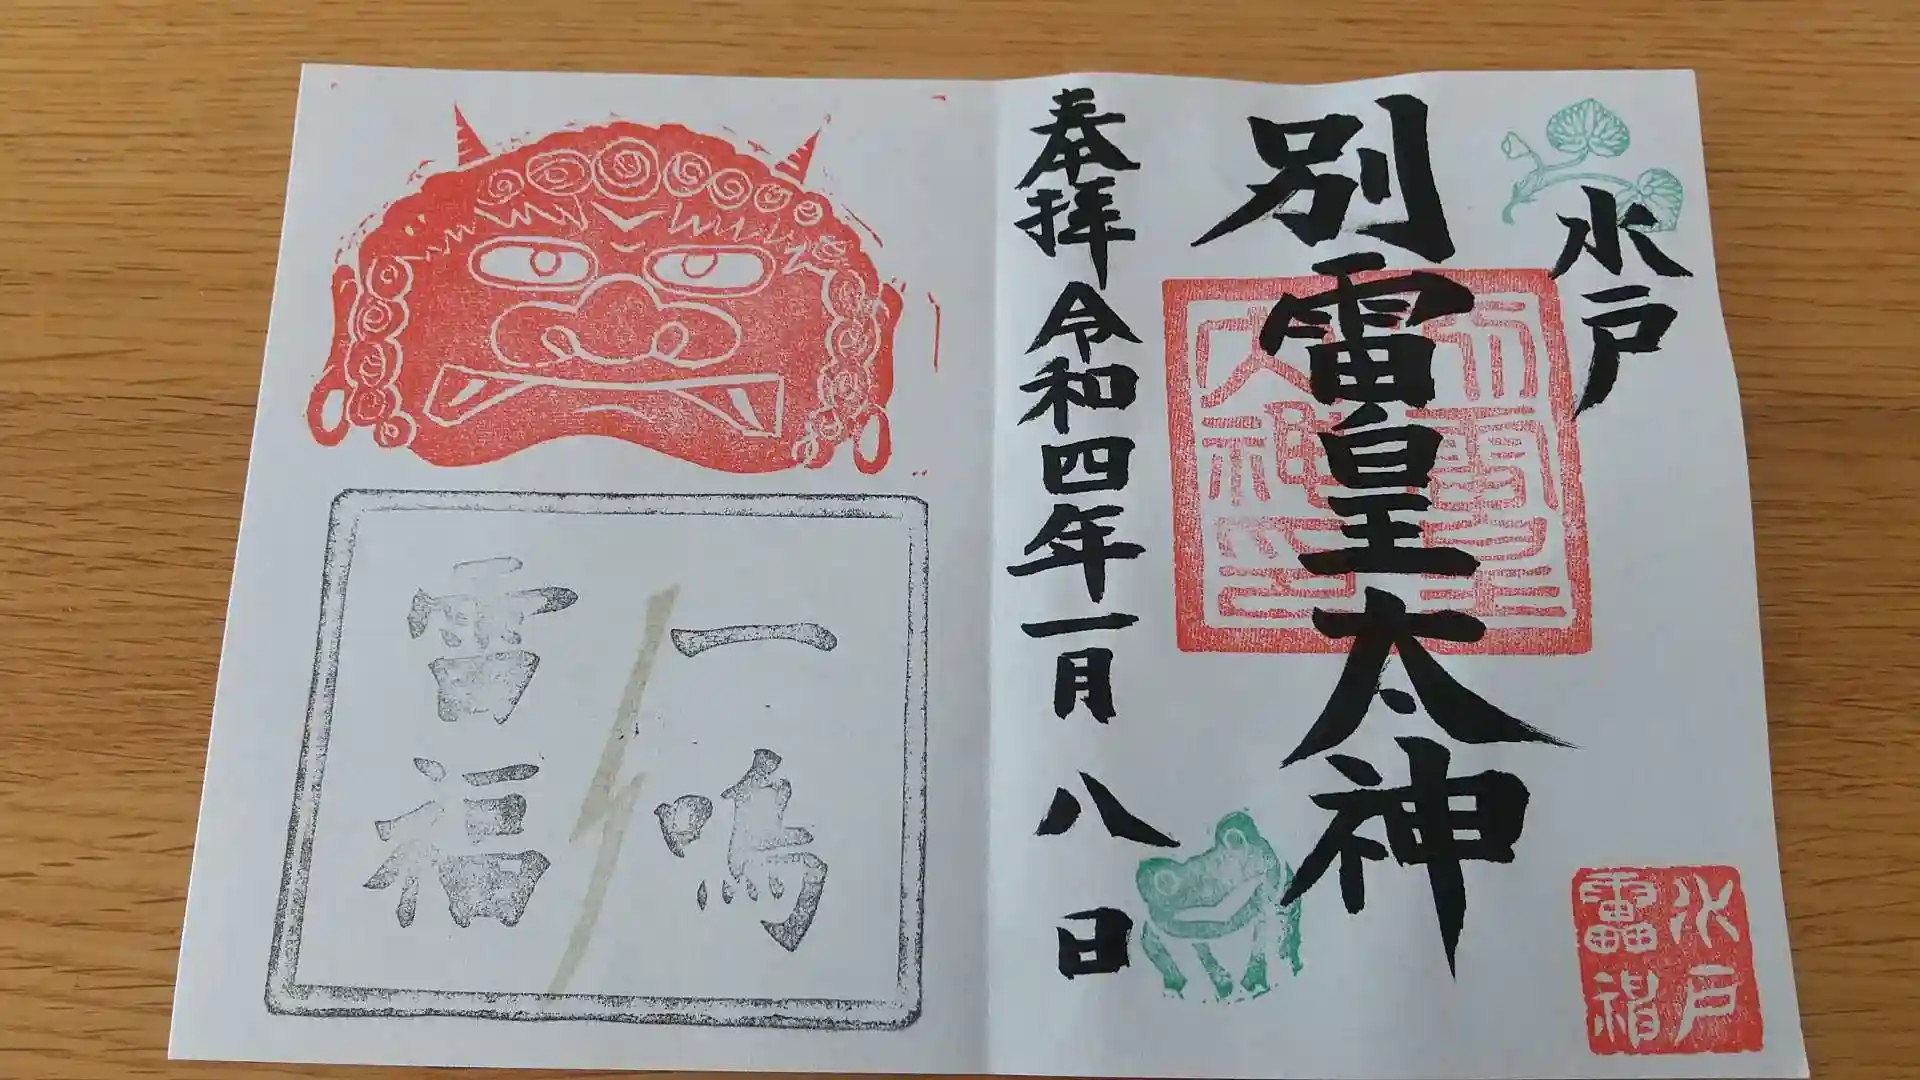 水戸
別雷皇太神
奉拝 令和四年一月八日
別雷皇
太神印
水戸
雷神
一鳴
雷福